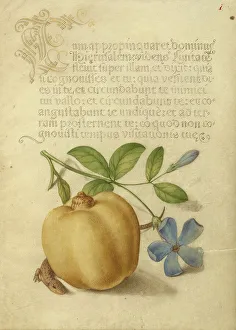 Cum appropinquaret dominus
Hierusalem videns
flevit super illam et dixit: quia
si cognovisses et tu: quia venient di-
es in te, et circundabunt te inimici
tui vallo: et circundabunt te: et co
angustabunt te undique: et ad ter-
ram prosternent te: eo quod non co
gnovisti tempus visitationis tuę